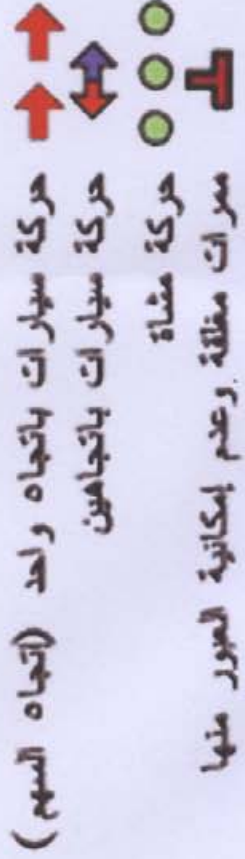 حركة سيارات باتجاه واحد (اتجاه السهم)
حركة سيارات باتجاهين
حركة مشاة
ممرات مغلقة وعدم إمكانية العبور منها